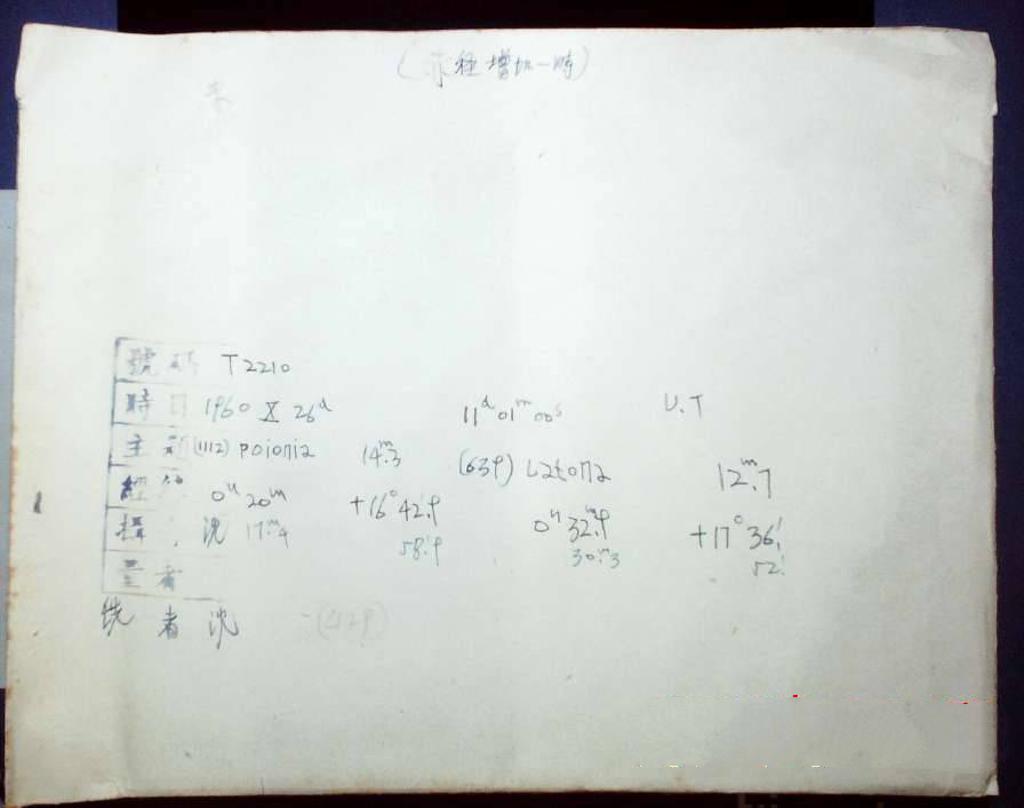 (赤經增加一時)
號碼 T2210
時日 1960 X 26ᵈ 11ᵈ 01ᵐ 00ˢ U.T
主 (1112) poionia 14ᵐ.3 (639) Latona 12ᵐ.7
經 0ʰ 20ᵐ +16° 42'.9 0ʰ 32ᵐ.9 +17° 36'.
攝 沈 17ᵐ.4 58'.9 30ᵐ.3 52'.
量者
者 沈 (429)